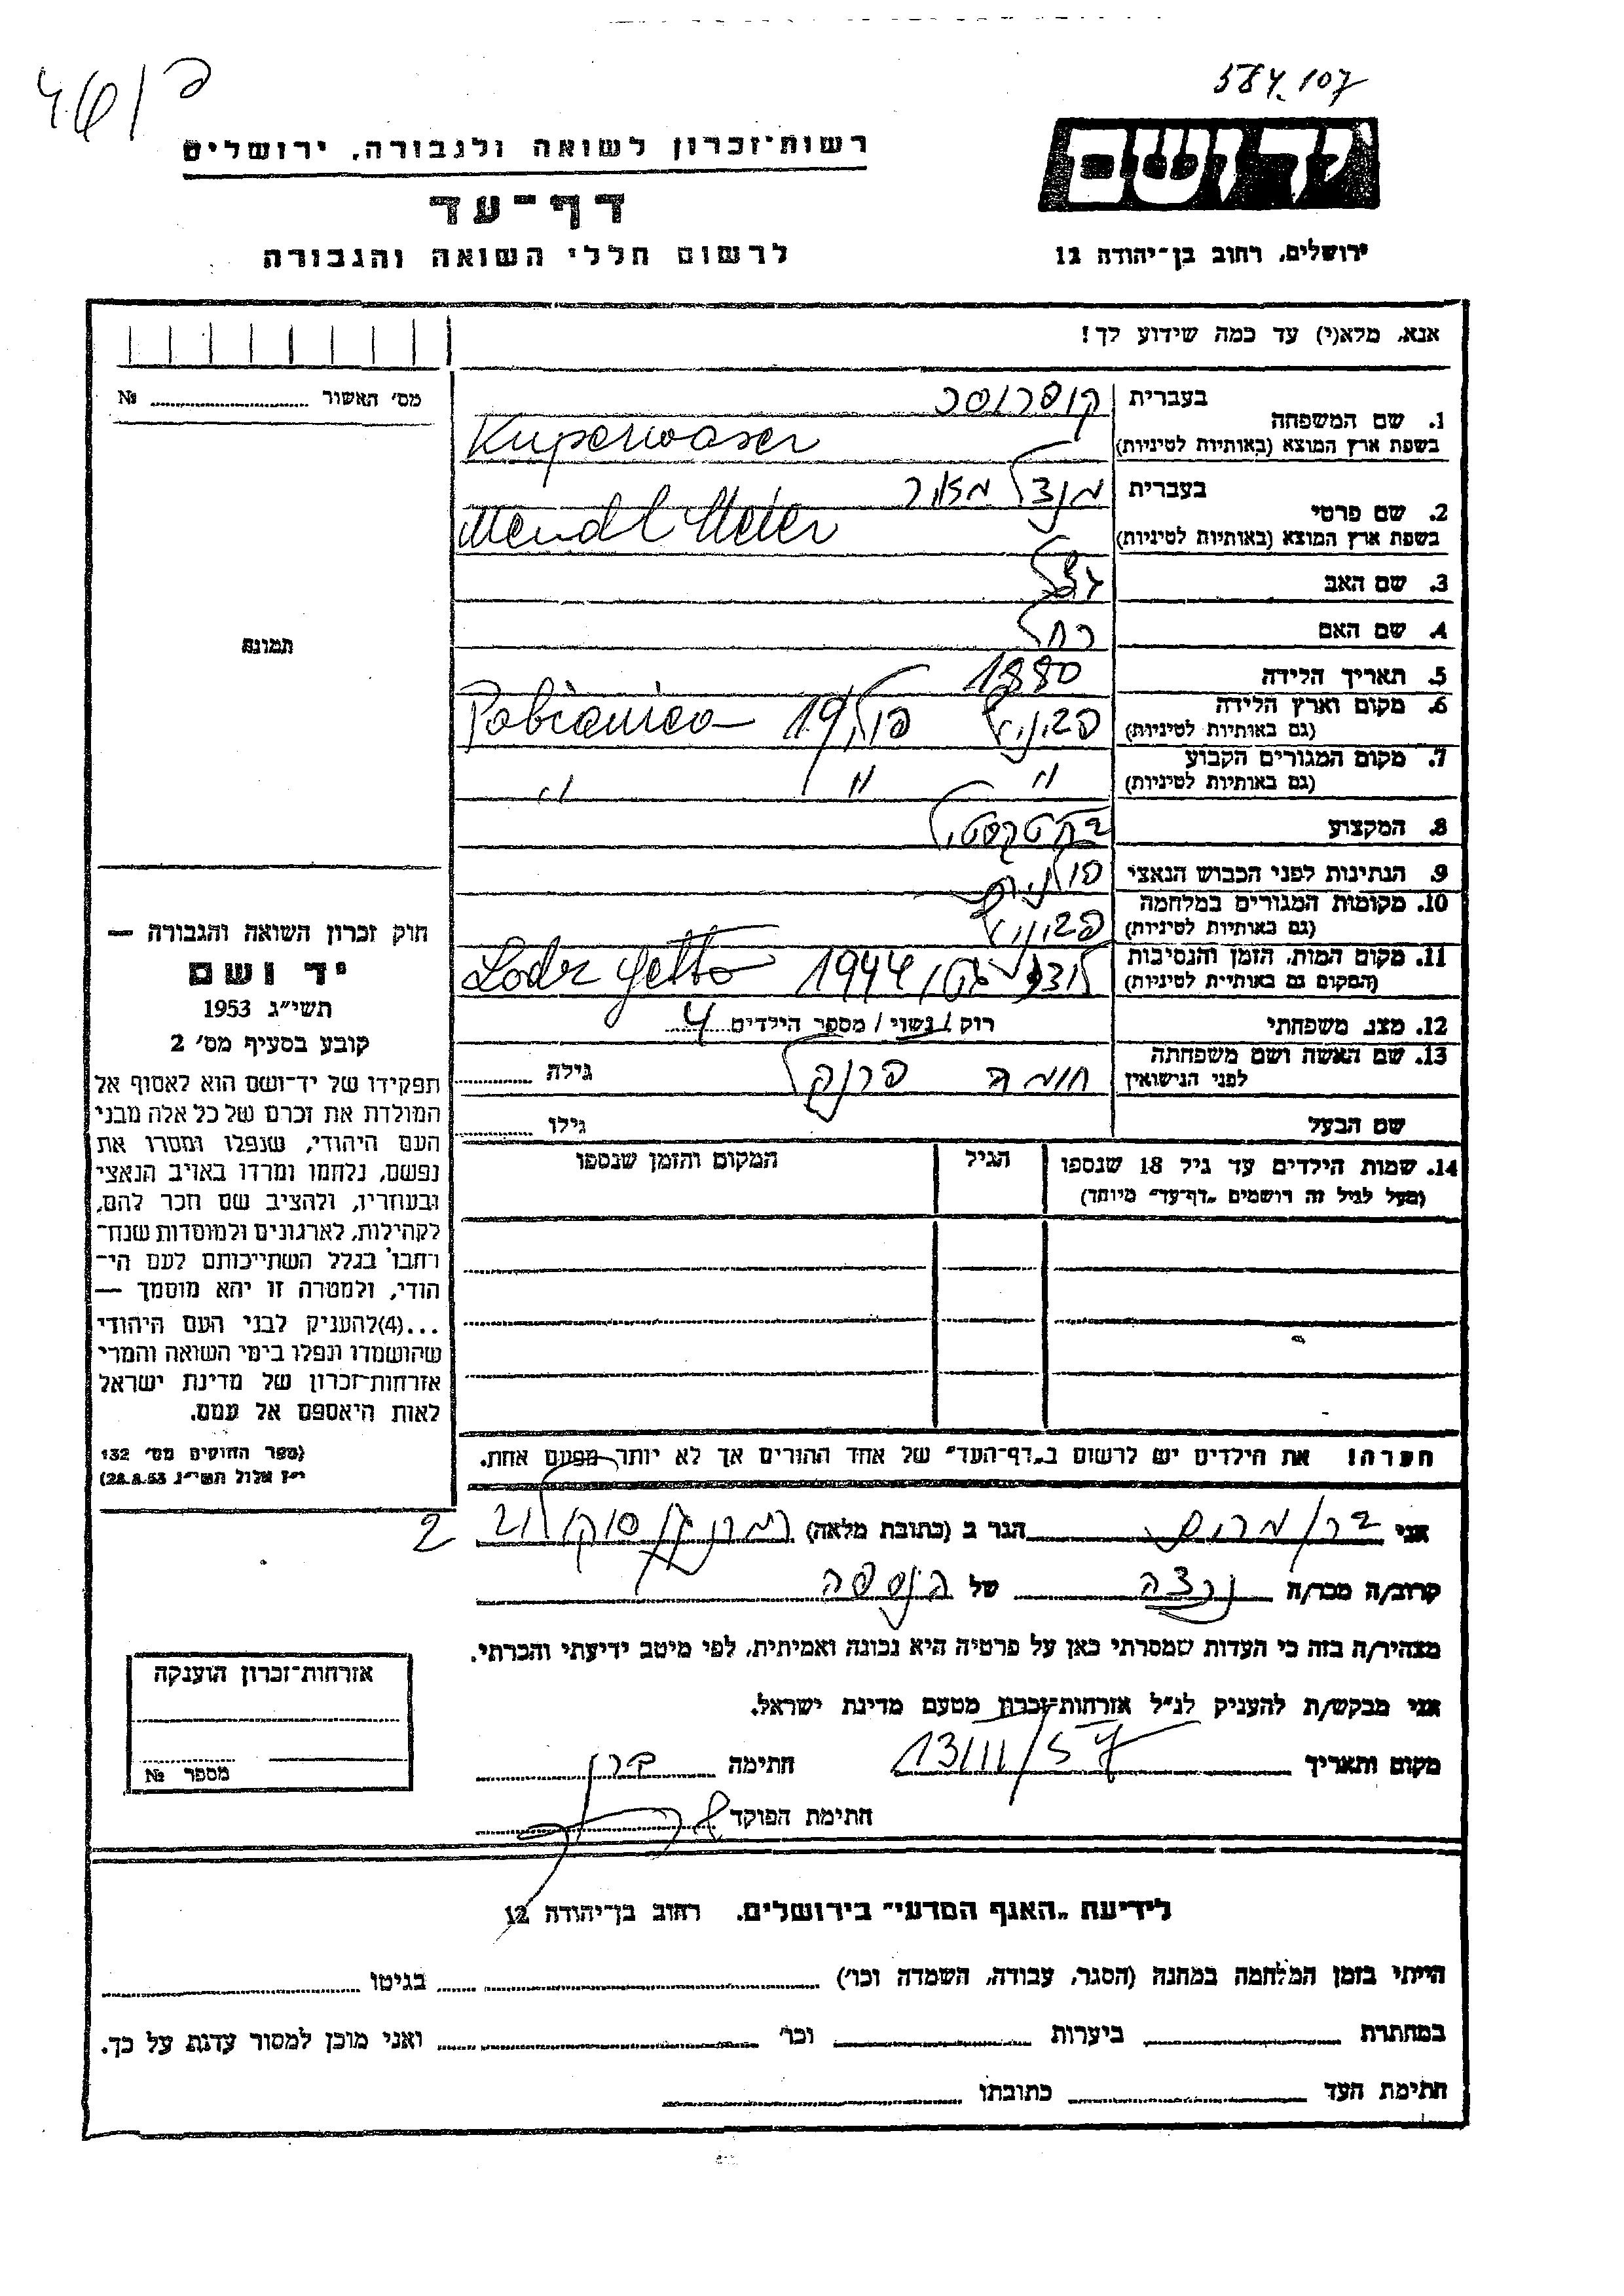 584.107
רשות־זכרון לשואה ולגבורה, ירושלים
יד ושם
דף־עד
לרשום חללי השואה והגבורה
ירושלים, רחוב בן־יהודה 12
אנא, מלא(י) עד כמה שידוע לך!
מס׳ האשור № 
1. שם המשפחה
בעברית קופרוסר
בשפת ארץ המוצא (באותיות לטיניות) Kuperwaser
2. שם פרטי
בעברית מנדל מאיר
בשפת ארץ המוצא (באותיות לטיניות) Mendl Meier
3. שם האב
4. שם האם רחל
תמונה
5. תאריך הלידה 1880
6. מקום וארץ הלידה
(גם באותיות לטיניות) פביניץ פולין Pabianica
7. מקום המגורים הקבוע
(גם באותיות לטיניות) " " "
8. המקצוע טקסטיל
9. הנתינות לפני הכבוש הנאצי
10. מקומות המגורים במלחמה
(גם באותיות לטיניות) פביניץ
11. מקום המות, הזמן והנסיבות
(המקום גם באותיות לטיניות) לודז גטו 1944 Lodz getto
12. מצב משפחתי רוק / נשוי / מספר הילדים 4
13. שם האשה ושם משפחתה
לפני הנישואין פרנקל גילה
שם הבעל גילו
14. שמות הילדים עד גיל 18 שנספו
(מעל לגיל זה רושמים „דף־עד״ מיוחד)
הגיל
המקום והזמן שנספו
חוק זכרון השואה והגבורה —
יד ושם
תשי״ג 1953
קובע בסעיף מס׳ 2
תפקידו של יד־ושם הוא לאסוף אל
המולדת את זכרם של כל אלה מבני
העם היהודי, שנפלו ומסרו את
נפשם, נלחמו ומרדו באויב הנאצי
ובעוזריו, ולהציב שם וזכר להם,
לקהילות, לארגונים ולמוסדות שנח־
רבו בגלל השתייכותם לעם הי־
הודי, ולמטרה זו יהא מוסמך —
...(4)להעניק לבני העם היהודי
שהושמדו ונפלו בימי השואה והמרי
אזרחות־זכרון של מדינת ישראל
לאות היאספם אל עמם.
(ספר החוקים מס׳ 132
י״ז אלול תשי״ג 28.8.53)
הערה! את הילדים יש לרשום ב„דף־העד״ של אחד ההורים אך לא יותר מפעם אחת.
אני בר מרים הגר ב (כתובת מלאה) רמת גן 21
קרוב/ה מכר/ה נכדה של הנספה
מצהיר/ה בזה כי העדות שמסרתי כאן על פרטיה היא נכונה ואמיתית, לפי מיטב ידיעתי והכרתי.
אני מבקש/ת להעניק לנ״ל אזרחות־זכרון מטעם מדינת ישראל.
מקום ותאריך 13/11/57 חתימה
חתימת הפוקד
אזרחות־זכרון הוענקה
מספר №
לידיעת „האגף המדעי״ בירושלים, רחוב בן־יהודה 12
הייתי בזמן המלחמה במחנה (הסגר, עבודה, השמדה וכו׳) בגיטו
במחתרת ביערות וכו׳ ואני מוכן למסור עדות על כך.
חתימת העד כתובתו